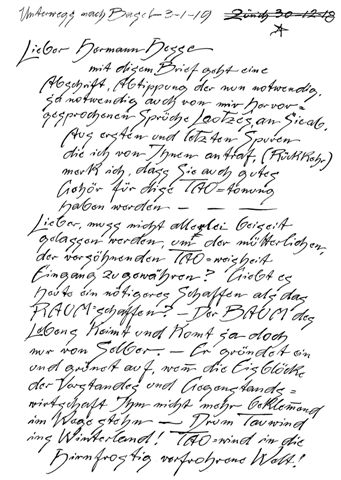 Unterwegg nach Bagel - 3-1-19 Zürich 30-12-18
Lieber Hermann Hegge
mit digem Brief geht eine
Abschrift, Abtippung der nun notwendig,
ja notwendig auch von mir hervor=
gesprochenen Sprüche Laotzes an Sie ab.
Aus ersten und letzten Spuren
die ich von Ihnen antraf, (Rückkehr)
merk ich, dass Sie auch gutes
Gehör für dige TAO=tönung
haben werden — — —
Lieber, muss nicht allerlei beiseit
gelassen werden, um der mütterlichen,
der versöhnenden TAO=weisheit
Eingang zu gewähren? Giebt es
heute ein nötigeres Schaffen als das
RAUM=schaffen? — Der BAUM des
Lebens keimt und komt ja doch
nur von Selber. — Er gründet ein
und grünet auf, wenn die Eisblöcke
der Vorstandes und Gegenstands=
wirtschaft Ihm nicht mehr beklemend
im Wege stehn — Drum Tauwind
ins Winterland! TAO=wind in die
hirnfrostig verfrohrene Welt!